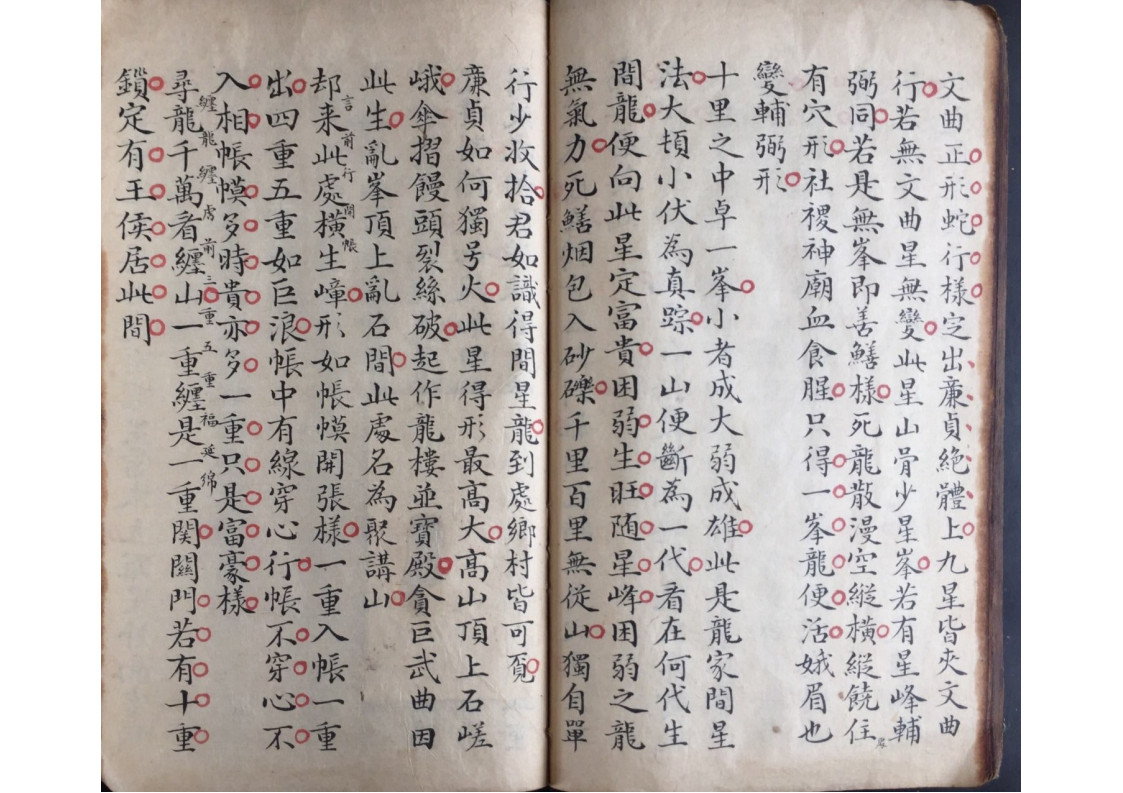 文曲正形蛇行樣定出廉貞絶體上九星皆夾文曲
行若無文曲星無變此星山骨少星峯若有星峰輔
弼同若是無峯即善鱔樣死龍散漫空縱橫縱饒住
有穴形社稷神廟血食腥只得一峯龍便活娥眉也
變輔弼形
十里之中卓一峯小者成大弱成雄此是龍家間星
法大頓小伏為真踪一山便斷為一代看在何代生
間龍便向此星定富貴困弱生旺随星峰困弱之龍
無氣力死鱔烟包入砂礫千里百里無從山獨自單
行少收拾君如識得間星龍到處鄉村皆可覓
廉貞如何獨号火此星得形最高大高山頂上石嵯
峨傘摺饅頭裂絲破起作龍樓並寶殿貪巨武曲因
此生亂峯頂上亂石間此處名為聚講山
言前行開帳
却来此處橫生嶂形如帳幙開張樣一重入帳一重
出四重五重如巨浪帳中有線穿心行帳不穿心不
入相帳幙多時貴亦多一重只是富豪樣
纏龍纏虎前三重五重福延綿
尋龍千萬者纏山一重纏是一重関関門若有十重
鎖定有王侯居此間